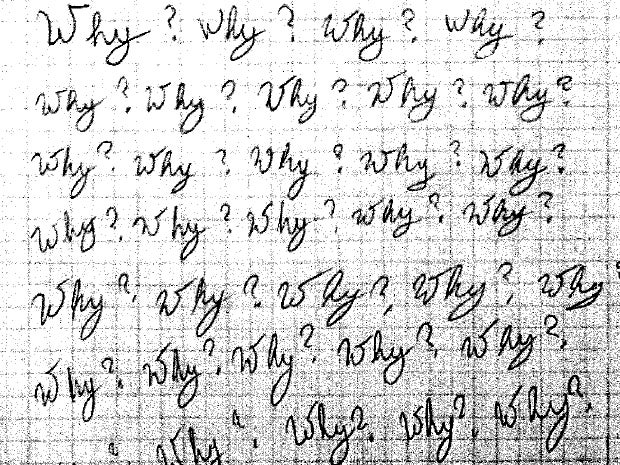 Why? Why? Why? Why?
Why? Why? Why? Why? Why?
Why? Why? Why? Why? Why?
Why?. Why? Why? Why? Why?
Why? Why? Why?, Why?, Why?
Why?. Why?. Why?. Why?. Why?.
? Why?. Why?. Why?, Why?.